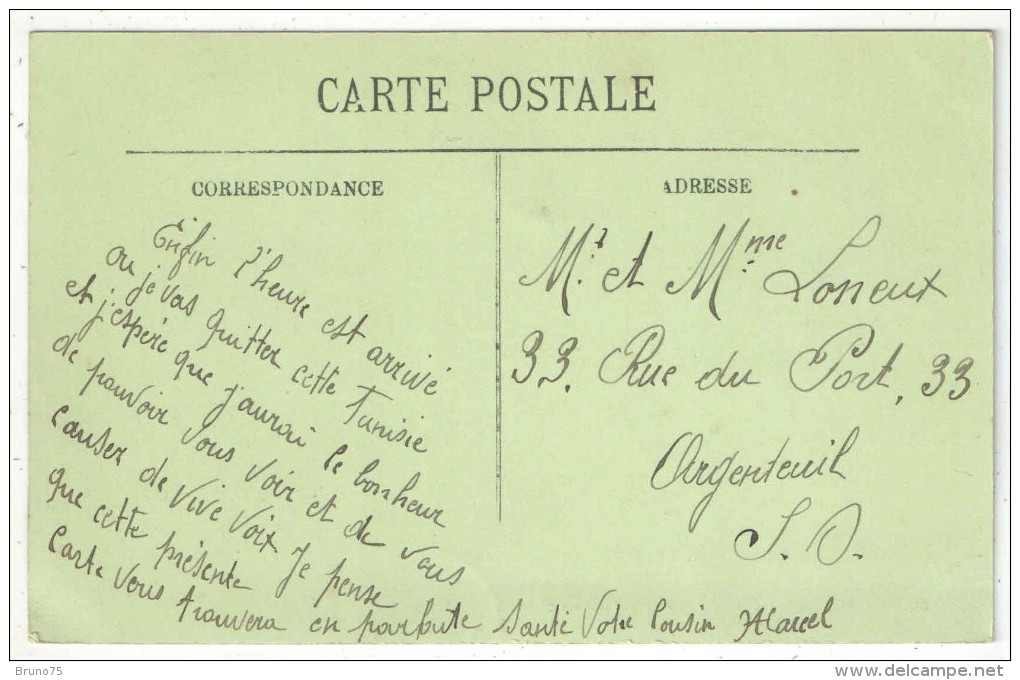 CARTE POSTALE
CORRESPONDANCE
Enfin l'heure est arrivé
ou je vas quitter cette Tunisie
et j'espère que j'aurai le bonheur
de pouvoir vous voir et de vous
causer de vive voix je pense
que cette présente
carte vous trouvera en parfaite santé Votre Cousin Marcel
ADRESSE
Mr. et Mme Losseux
33. Rue du Port, 33
Argenteuil
S. O.
Bruno75
www.delcampe.net